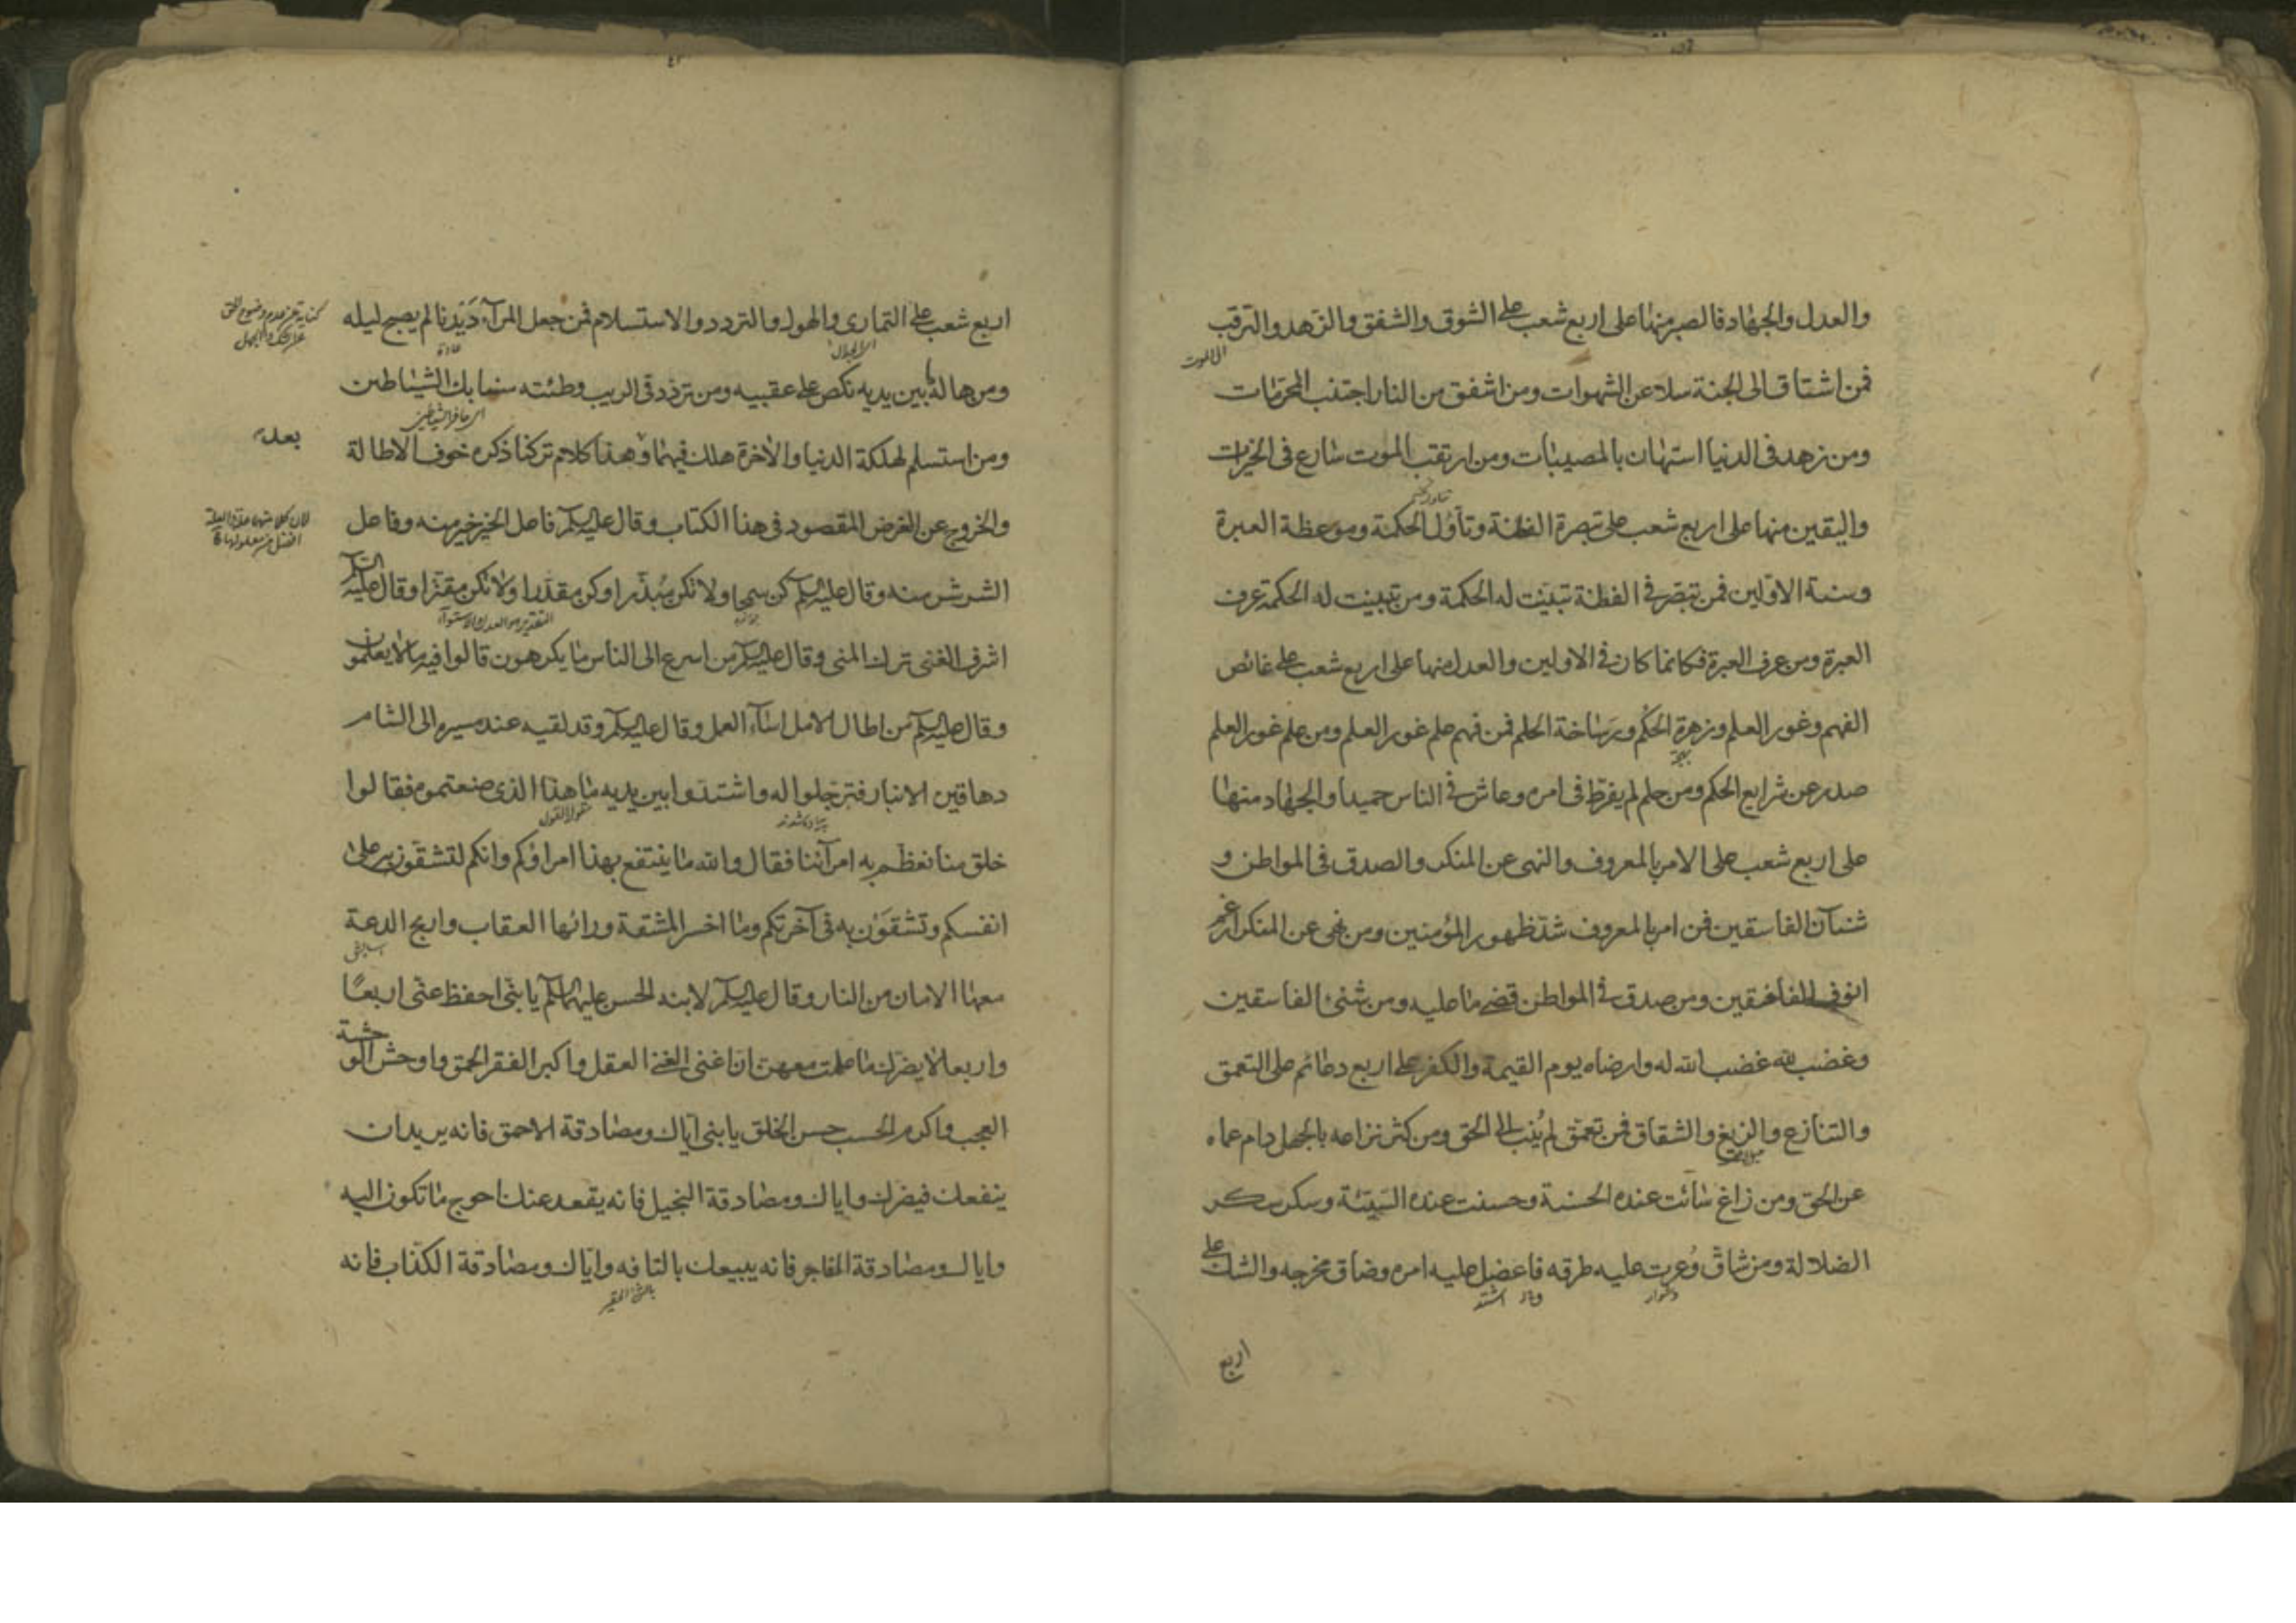 والعدل والجهاد فالصبر منها على اربع شعب على الشوق والشفق والزهد والترقب
الى الموت
فمن اشتاق الى الجنة سلا عن الشهوات ومن اشفق من النار اجتنب المحرمات
ومن زهد فى الدنيا استهان بالمصيبات ومن ارتقب الموت سارع فى الخيرات
واليقين منها على اربع شعب على تبصرة الفطنة وتأول الحكمة وموعظة العبرة
وسنة الاوّلين فمن تبصّر فى الفطنة تبيّنت له الحكمة ومن تبينت له الحكمة عرف
العبرة ومن عرف العبرة فكانما كان فى الاولين والعدل منها على اربع شعب على غائص
الفهم وغور العلم وزهرة الحُكم ورَسَاخة الحلم فمن فهم علم غور العلم ومن علم غور العلم
صدر عن شرايع الحكم ومن حلم لم يفرّط فى امره وعاش فى الناس حميدا والجهاد منها
على اربع شعب على الامر بالمعروف والنهى عن المنكر والصدق فى المواطن و
شنآن الفاسقين فمن امر بالمعروف شدّ ظهور المؤمنين ومن نهى عن المنكر ارغم
انوف المنافقين ومن صدق فى المواطن قضى ما عليه ومن شنئ الفاسقين
وغضب لله غضب الله له وارضاه يوم القيمة والكفر على اربع دعائم على التعمق
والتنازع والزيغ والشقاق فمن تعمّق لم يُنِب الى الحق ومن كثر نزاعه بالجهل دام عماه
عن الحق ومن زاغ سائت عنده الحسنة وحسنت عنده السّيّئة وسكر سكر
الضلالة ومن شاقّ وُعرت عليه طرقه فاعضل عليه امره وضاق مخرجه والشك على
دشوار
اشتد
اربع
اربع شعب على التمارى والهول والتردد والاستسلام فمن جعل المرآء دَيْدَنا لم يصبح ليله
عادة
ومن هاله ما بين يديه نكص على عقبيه ومن تردّد فى الريب وطئته سنابك الشياطين
اى حافر الشياطين
ومن استسلم لهلكة الدنيا والآخرة هلك فيهما وبعد هذا كلام تركنا ذكره خوف الاطالة
والخروج عن الغرض المقصود فى هذا الكتاب وقال عليه السلم فاعل الخير خير منه وفاعل
الشر شر منه وقال عليه السلم كن سمحا ولا تكن مُبذّرا وكن مقدّرا ولا تكن مقتّرا وقال عليه السلم
اشرف الغنى ترك المنى وقال عليه السلم من اسرع الى الناس ما يكرهون قالوا فيه ما لا يعلمون
وقال عليه السلم من اطال الامل اسآء العمل وقال عليه السلم وقد لقيه عند مسيره الى الشام
دهاقين الانبار فترجّلوا له واشتدّوا بين يديه ما هذا الذى صنعتموه فقالوا
پیاده شدند
خلق منا نعظّم به امرآئنا فقال والله ما ينتفع بهذا امراؤكم وانكم لتشقّون به على
انفسكم وتشقَون به فى آخرتكم وما اخسر المشقة ورائها العقاب واربح الدعة
معها الامان من النار وقال عليه السلم لابنه الحسن عليهما السلم يا بنى احفظ عنّى اربعًا
واربعا لا يضرّك ما عملت معهن ان اغنى الغنى العقل واكبر الفقر الحمق واوحش الوحشة
العجب واكرم الحسب حسن الخلق يا بنى اياك ومصادقة الاحمق فانه يريد ان
ينفعك فيضرك واياك ومصادقة البخيل فانه يقعد عنك احوج ما تكون اليه
واياك ومصادقة الفاجر فانه يبيعك بالتافه وايّاك ومصادقة الكذّاب فانه
بالشئ الحقير
كناية عن عدم وضوح الحق
بعد